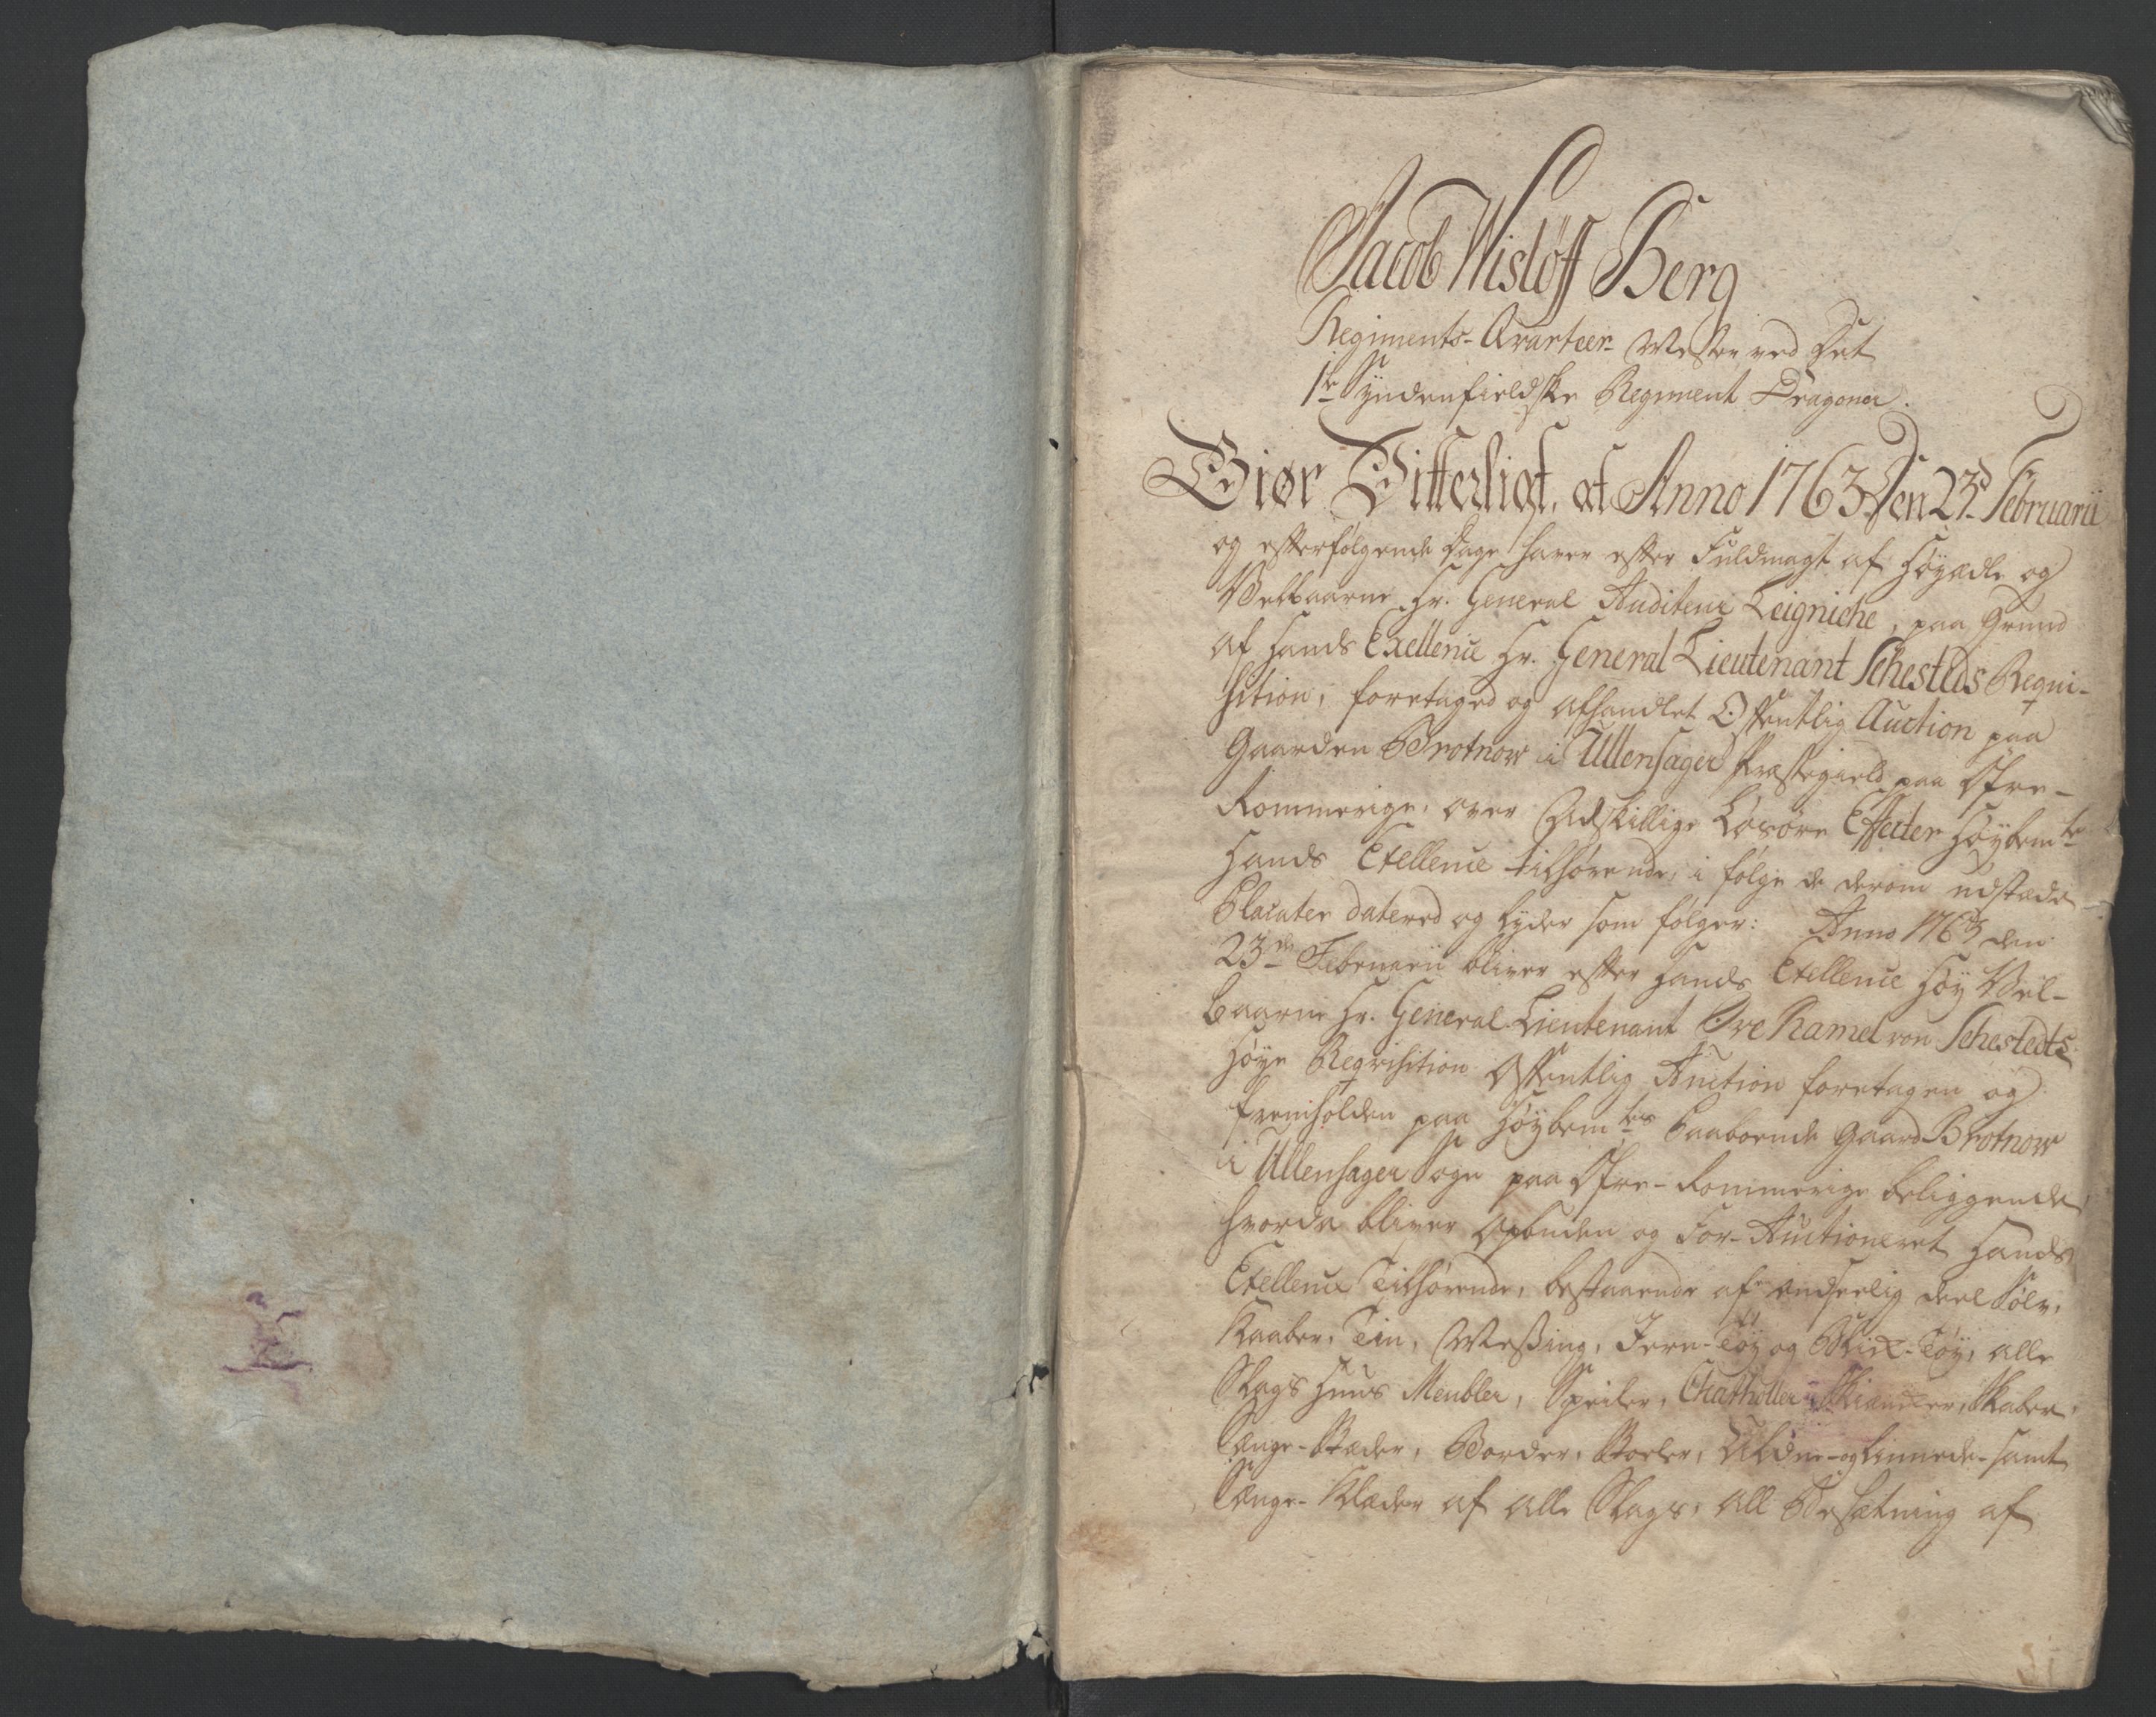 Jacob Wisløff Berg
Regiments-Qvarteer-Mester ved Det
1te Syndenfieldske Regiment Dragoner.
Giør Vitterligt, at Anno 1763 Den 23d Februarii
og efterfølgende Dage haver efter Fuldmagt af Høyædle og
Velbaarne Hr. General Auditeur Leigniche, paa Grund
af Hands Exellence Hr. General Lieutenant Schesteds Reqvi-
sition, foretaged og afhandlet Offentlig Auction paa
Gaarden Brotnow i Ullensager Præstegield paa Øfre-
Rommerige, over Adskillige Løsøre Effecter Høybemte
Hands Exellence tilhørende, i følge de derom udstæde
Placater datered og lyder som følger: Anno 1763 den
23de Februarii bliver efter Hands Exellence Høy Vel-
baarne Hr. General-Lieutenant Ove Ramel von Schestedts
Høye Reqvisition Offentlig Auction foretagen og
fremholden paa Høybemtes Paaboende Gaard Brotnow
i Ullensager Sogn paa Øfre-Rommerige beliggende,
hvorda bliver opbuden og For-Auctioneret Hands
Exellence Tilhørende, bestaaende af en Anseelig deel Sølv,
Kaaber, Tin, Messing, Jern-Tøy og Blik-Tøy, alle
Slags Huus Meubler, Speiler, Chathuller, Skiænker, Skaber,
Senge-Stæder, Border, Stoeler, Uldne- og Linnede- samt
Senge-Klæder af alle Slags, all Besætning af